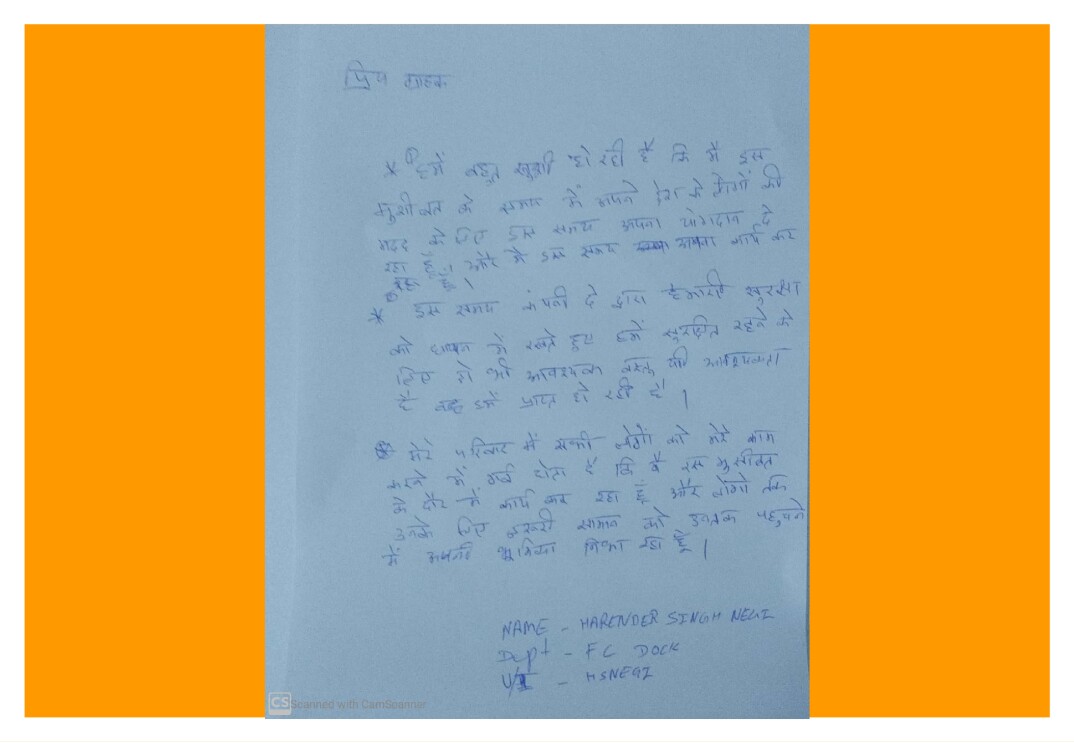 प्रिय ग्राहक
* ① हमें बहुत खुशी हो रही है कि मैं इस
मुशीबत के समय में अपने देश के लोगों की
मदद के लिए इस समय अपना योगदान दे
रहा हूँ। और मैं इस समय अपना कार्य कर
रहा हूँ।
* इस समय कंपनी दे द्वारा हमारी सुरक्षा
को ध्यान में रखते हुए हमें सुरक्षित रहने के
लिए जो भी आवश्यक वस्तु की आवश्यकता
है वह हमें प्राप्त हो रही है।
मेरे परिवार में सभी लोगों को मेरे काम
करने में गर्व होता है कि मैं इस मुसीबत
के दौर में कार्य कर रहा हूँ और लोगों तक
उनके लिए जरूरी सामान को उनतक पहुचाने
में अपनी भूमिका निभा रहा हूँ।
NAME - HARENDER SINGH NEGI
Dept - FC DOCK
- HSNEGI
CS Scanned with CamScanner